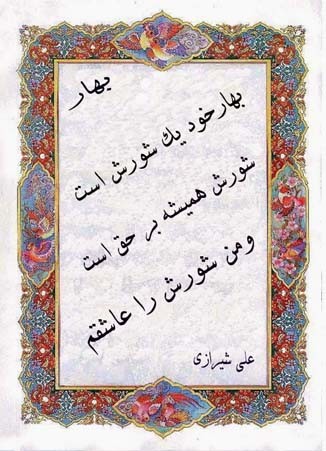 بهار
بهار خود یک شورش است
شورش همیشه بر حق است
و من شورش را عاشقم
علی شیرازی